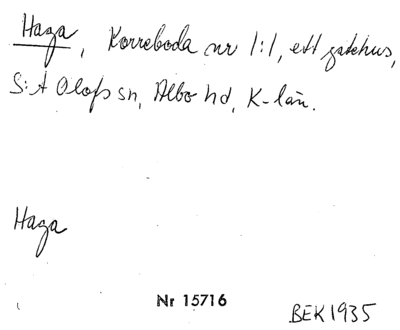 Haga, Korreboda nr 1:1, ett gatehus,
S:t Olofs sn, Albo hd, K-län.
Haga
Nr 15716
BEK 1935